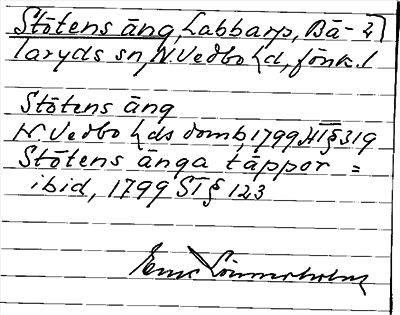 Stötens äng, Labbarp, Bä-
laryds sn, N. Vedbo hd, Jönk. l
Stötens äng
N. Vedbo hds domb, 1799 HT § 319
Stötens änga täppor =
ibid, 1799 ST § 123